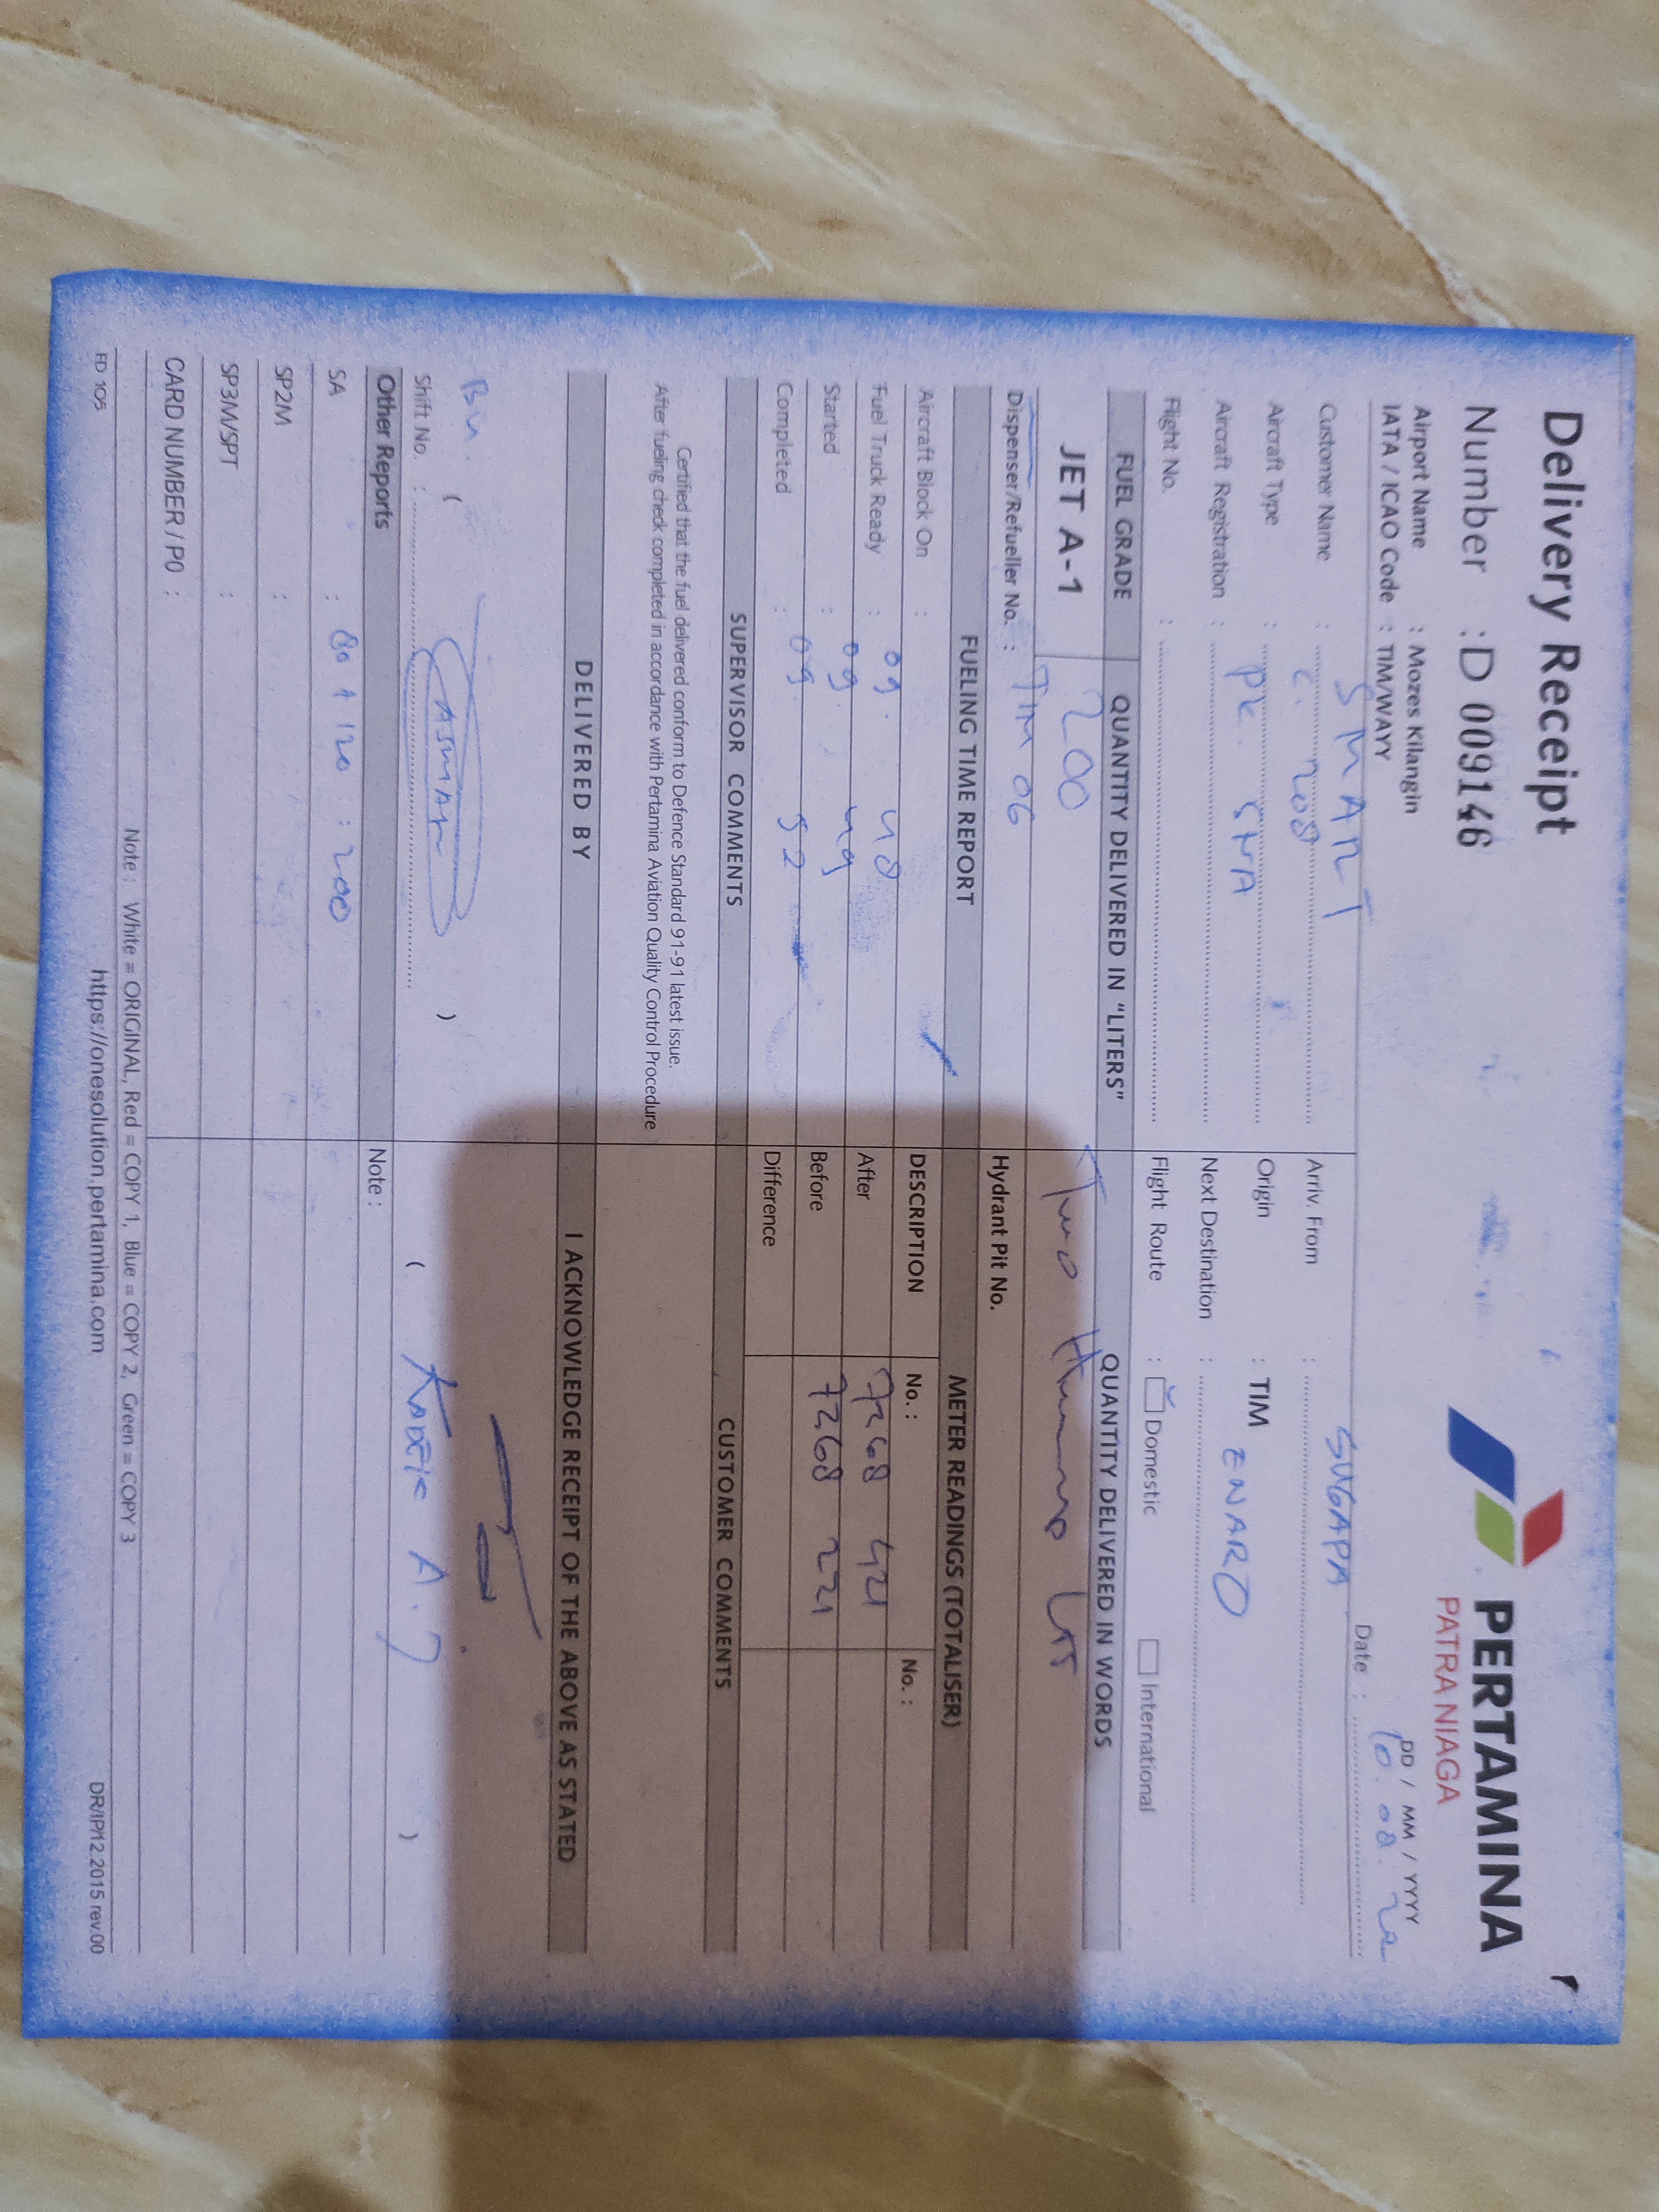 Delivery Receipt
Number : D 009146
PERTAMINA
PATRA NIAGA
Airport Name : Mozes Kilangin
IATA / ICAO Code : TIM/WAYY
DD / MM / YYYY
Date : 10. 08. 22
Customer Name : SMART
Arriv. From : SUGAPA
Aircraft Type : C. 208
Origin : TIM
Aircraft Registration : PK. SNA
Next Destination : ENARO
Flight No. :
Flight Route : Domestic International
FUEL GRADE QUANTITY DELIVERED IN "LITERS" QUANTITY DELIVERED IN WORDS
JET A-1 200 Two Hundred Ltr
Dispenser/Refueller No. : TIM 06 Hydrant Pit No.
FUELING TIME REPORT METER READINGS (TOTALISER)
Aircraft Block On : DESCRIPTION No. : No. :
Fuel Truck Ready : 09. 48 After 7268 421
Started : 09. 49 Before 7268 221
Completed : 09. 52 Difference
SUPERVISOR COMMENTS CUSTOMER COMMENTS
Certified that the fuel delivered conform to Defence Standard 91-91 latest issue.
After fueling check completed in accordance with Pertamina Aviation Quality Control Procedure
DELIVERED BY I ACKNOWLEDGE RECEIPT OF THE ABOVE AS STATED
( ASMAN )
Shift No. :
Other Reports Note :
SA : 80 + 120 : 200
SP2M :
SP3M/SPT :
CARD NUMBER / PO :
Note : White = ORIGINAL, Red = COPY 1, Blue = COPY 2, Green = COPY 3
FD 105 https://onesolution.pertamina.com DR/IP/12.2015 rev.00